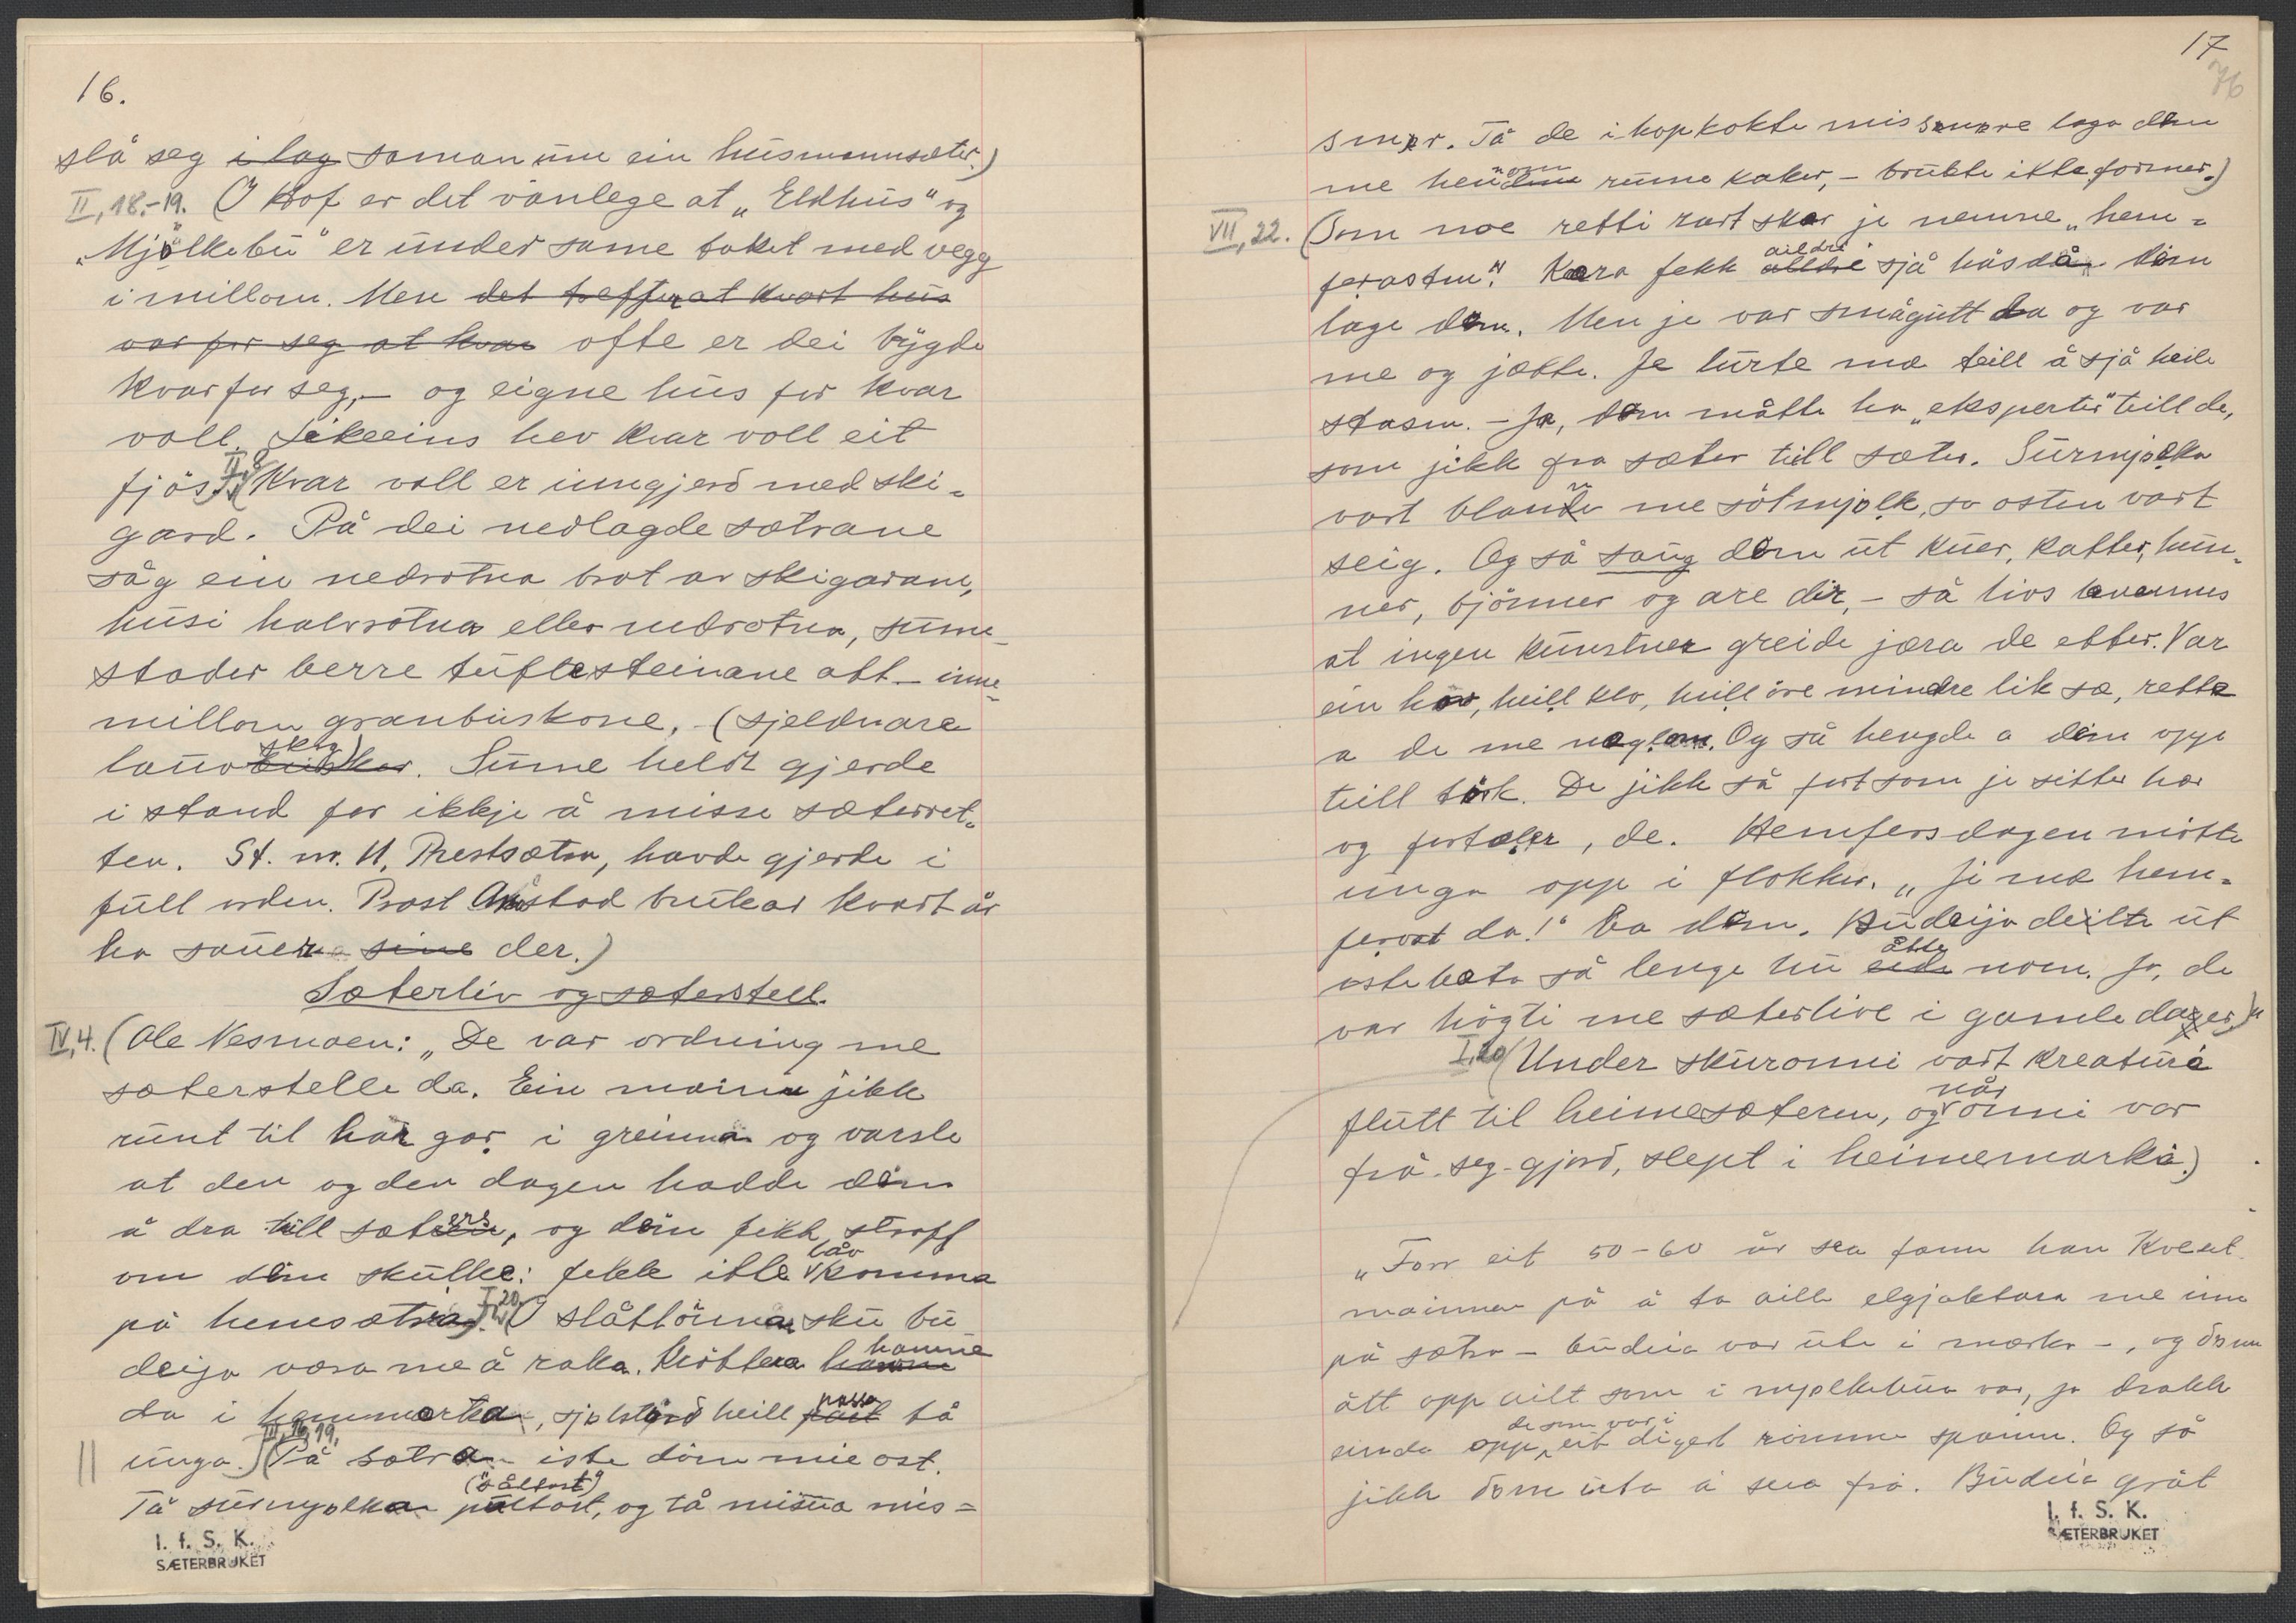 16.
slå seg i lag saman um ein husmannsæter.)
II, 18.-19. (I Hof er det vanlege at „Eldhus" og
„Mjølkebu" er under same taket med vegg
i millom. Men det treffer at kvart hus
var for seg at kvar ofte er dei bygde
kvar for seg, - og eigne hus for kvar
voll. Likeeins hev kvar voll eit
fjøs.) II, 8 (Kvar voll er inngjerd med ski-
gard. På dei nedlagde sætrane
såg ein nedrotna brot av skigarane,
husi halvrotna eller nedrotna, sume-
stader berre tuftesteinane att - inni-
millom granbuskone, - (sjeldnare
lauvbuskar skog). Sume heldt gjerde
i stand for ikkje å misse sæterret-
ten. St. nr. 11, Prestsætra, havde gjerde i
full orden. Prost Anstad brukar kvart år
ha sauer sine der.)
Sæterliv og sæterstell.
IV, 4. (Ole Nesmoen: „De var ordning me
sæterstelle da. Ein mainn jikk
runt til hår gar i greinna og varsle
at den og den dagen hadde døm
å dra till sætern, og døm fikk straff
om døm skulke: fekk itte låv komma
på hemsætra.) I, 20 (I slåttönna sku bu
deija væra me å raka. Krøttera hamne
da i hemmarka, sjøløstyrd heill passa tå
unga.) III, 16, 19. (På sætra iste döm mie ost.
Tå surmjølka pultost („såltost"), og tå misua mis-
I. f. S. K.
SÆTERBRUKET
17
76
smør. Tå de ihopkokte missmøre laga døm
me hennom runne kaker, - brukte ikke former.)
VII, 22. (Som noe retti rart skar je nemne „hem-
ferostm". Kara fekk aildri sjå håsdå døm
lage døm. Men je var smågutt da og var
me og jætte. Je lurte mæ teill å sjå heile
stasm. - Ja, døm måtte ha „eksperter" teill de,
som jikk fra sæter teill sæter. Surmjølka
vart blande me søtmjølk, so osten vart
seig. Og så saug døm ut kuer, katter, hun-
ner, bjønner og are dir, - så livs levannes
at ingen kunstner greide jæra de etter. Var
ein hår, heill klo, heill øre mindre lik sæ, rette
a de me neglom. Og så hengde a døm opp
teill tørk. De jikk så fort som je sitter her
og forteler, de. Hemfersdagen møtte
unga opp i flokker. „Ji mæ hem-
ferost da!" ba døm. Budeija deilte ut
ostebeta så lenge hu åtte nom. Ja, de
var høgti me sæterlive i gamle dager.)"
I, 20 (Under skuronni vart kreaturi
flutt til heimesæteren, og når onni var
frå-seg-gjord, slept i heimemarki.)
„Forr eit 50-60 år sea fann han Kveset
mainnen på å ta aille elgjaktara me inn
på sætra - budeia var ute i marka -, og døm
ått opp ailt som i mjølkebua var, ja drakk
einda opp de som var i eit diget rømme spann. Og så
jikk døm uta å sea frå. Budeia gråt
I. f. S. K.
SÆTERBRUKET